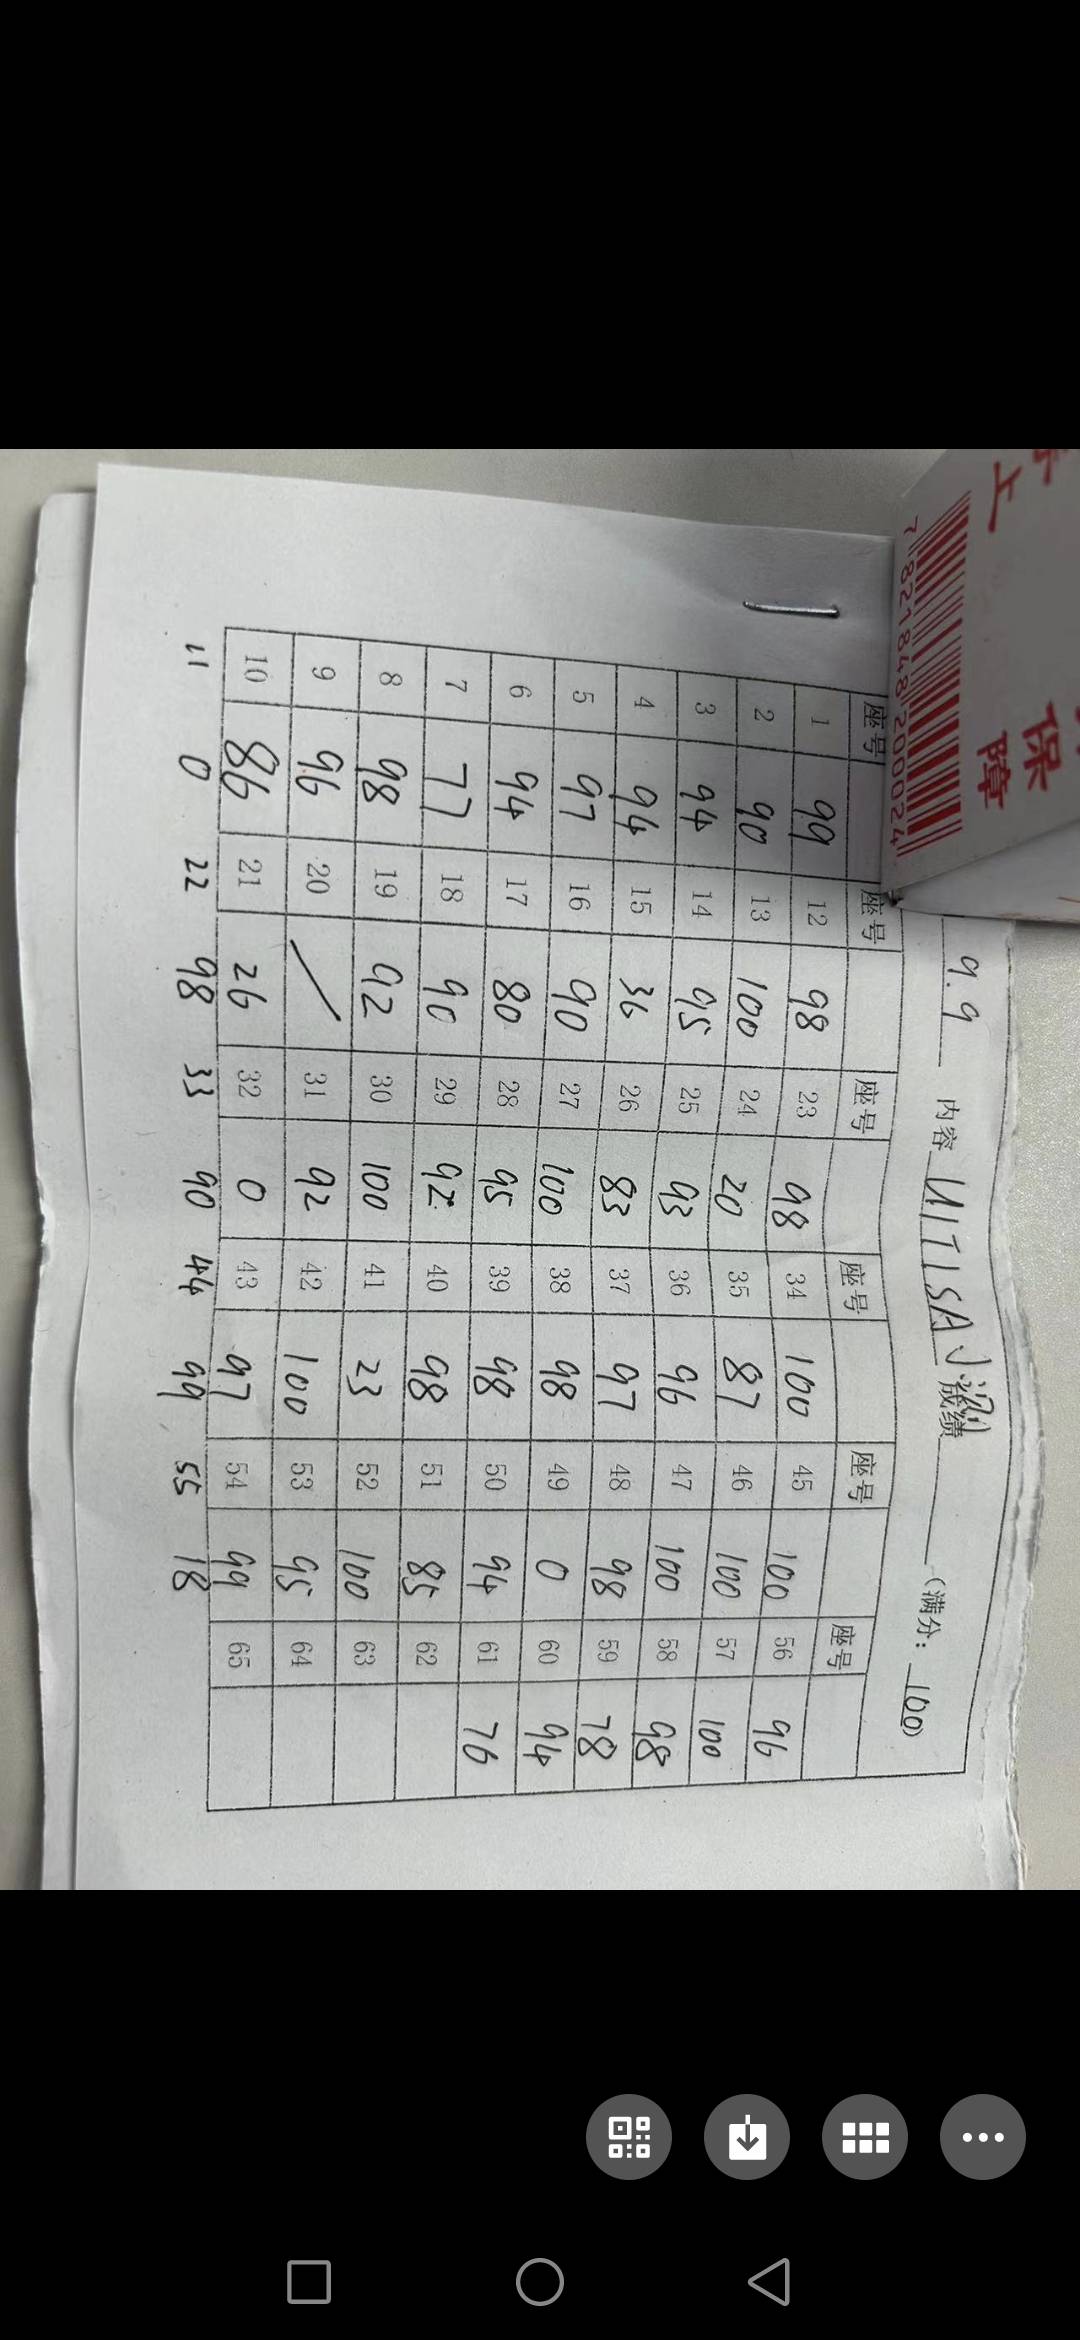 9.9 内容 U1T1SA小测 成绩 (满分: 100)
座号 座号 座号 座号 座号 座号
1 99 12 98 23 98 34 100 45 100 56 96
2 90 13 100 24 20 35 87 46 100 57 100
3 94 14 95 25 93 36 96 47 100 58 98
4 94 15 36 26 83 37 97 48 98 59 78
5 97 16 90 27 100 38 98 49 0 60 94
6 94 17 80 28 95 39 98 50 94 61 76
7 77 18 90 29 92 40 98 51 85 62
8 98 19 92 30 100 41 23 52 100 63
9 96 20 / 31 92 42 100 53 95 64
10 86 21 26 32 0 43 97 54 99 65
11 0 22 98 33 90 44 99 55 18
上
保
障
7 821848 200024